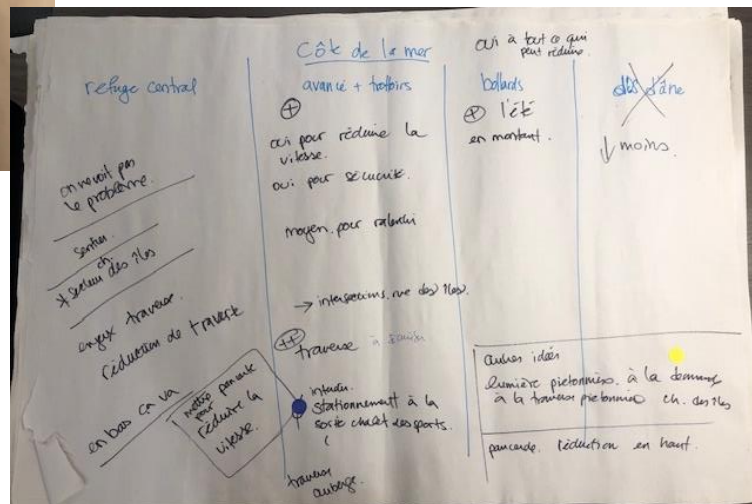 Côte de la mer
oui à tout ce qui
peut réduire.
refuge central
on ne voit pas
le problème.
sentier
ch.
* secteur des îles
enjeux traverse.
réduction de traverse
en bas ça va
mettre pancarte
pour
réduire la
vitesse.
avancé + trottoirs
+
oui pour réduire la
vitesse.
oui pour sécurité.
moyen pour ralentir
→ intersections. rue des îles.
++
traverse à
stationnement à la
sortie chalet des sports.
traverse
auberge.
bollards
+ l'été
en montant.
dos d'âne
↓ moins.
autres idées
lumière piétonnière. à la demande
à la traverse piétonnière ch. des îles
pancarte. réduction en haut.